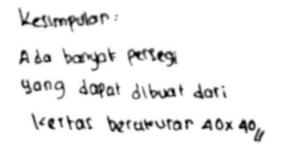 Kesimpulan:
Ada banyak persegi
yang dapat dibuat dari
kertas berukuran 40x40//